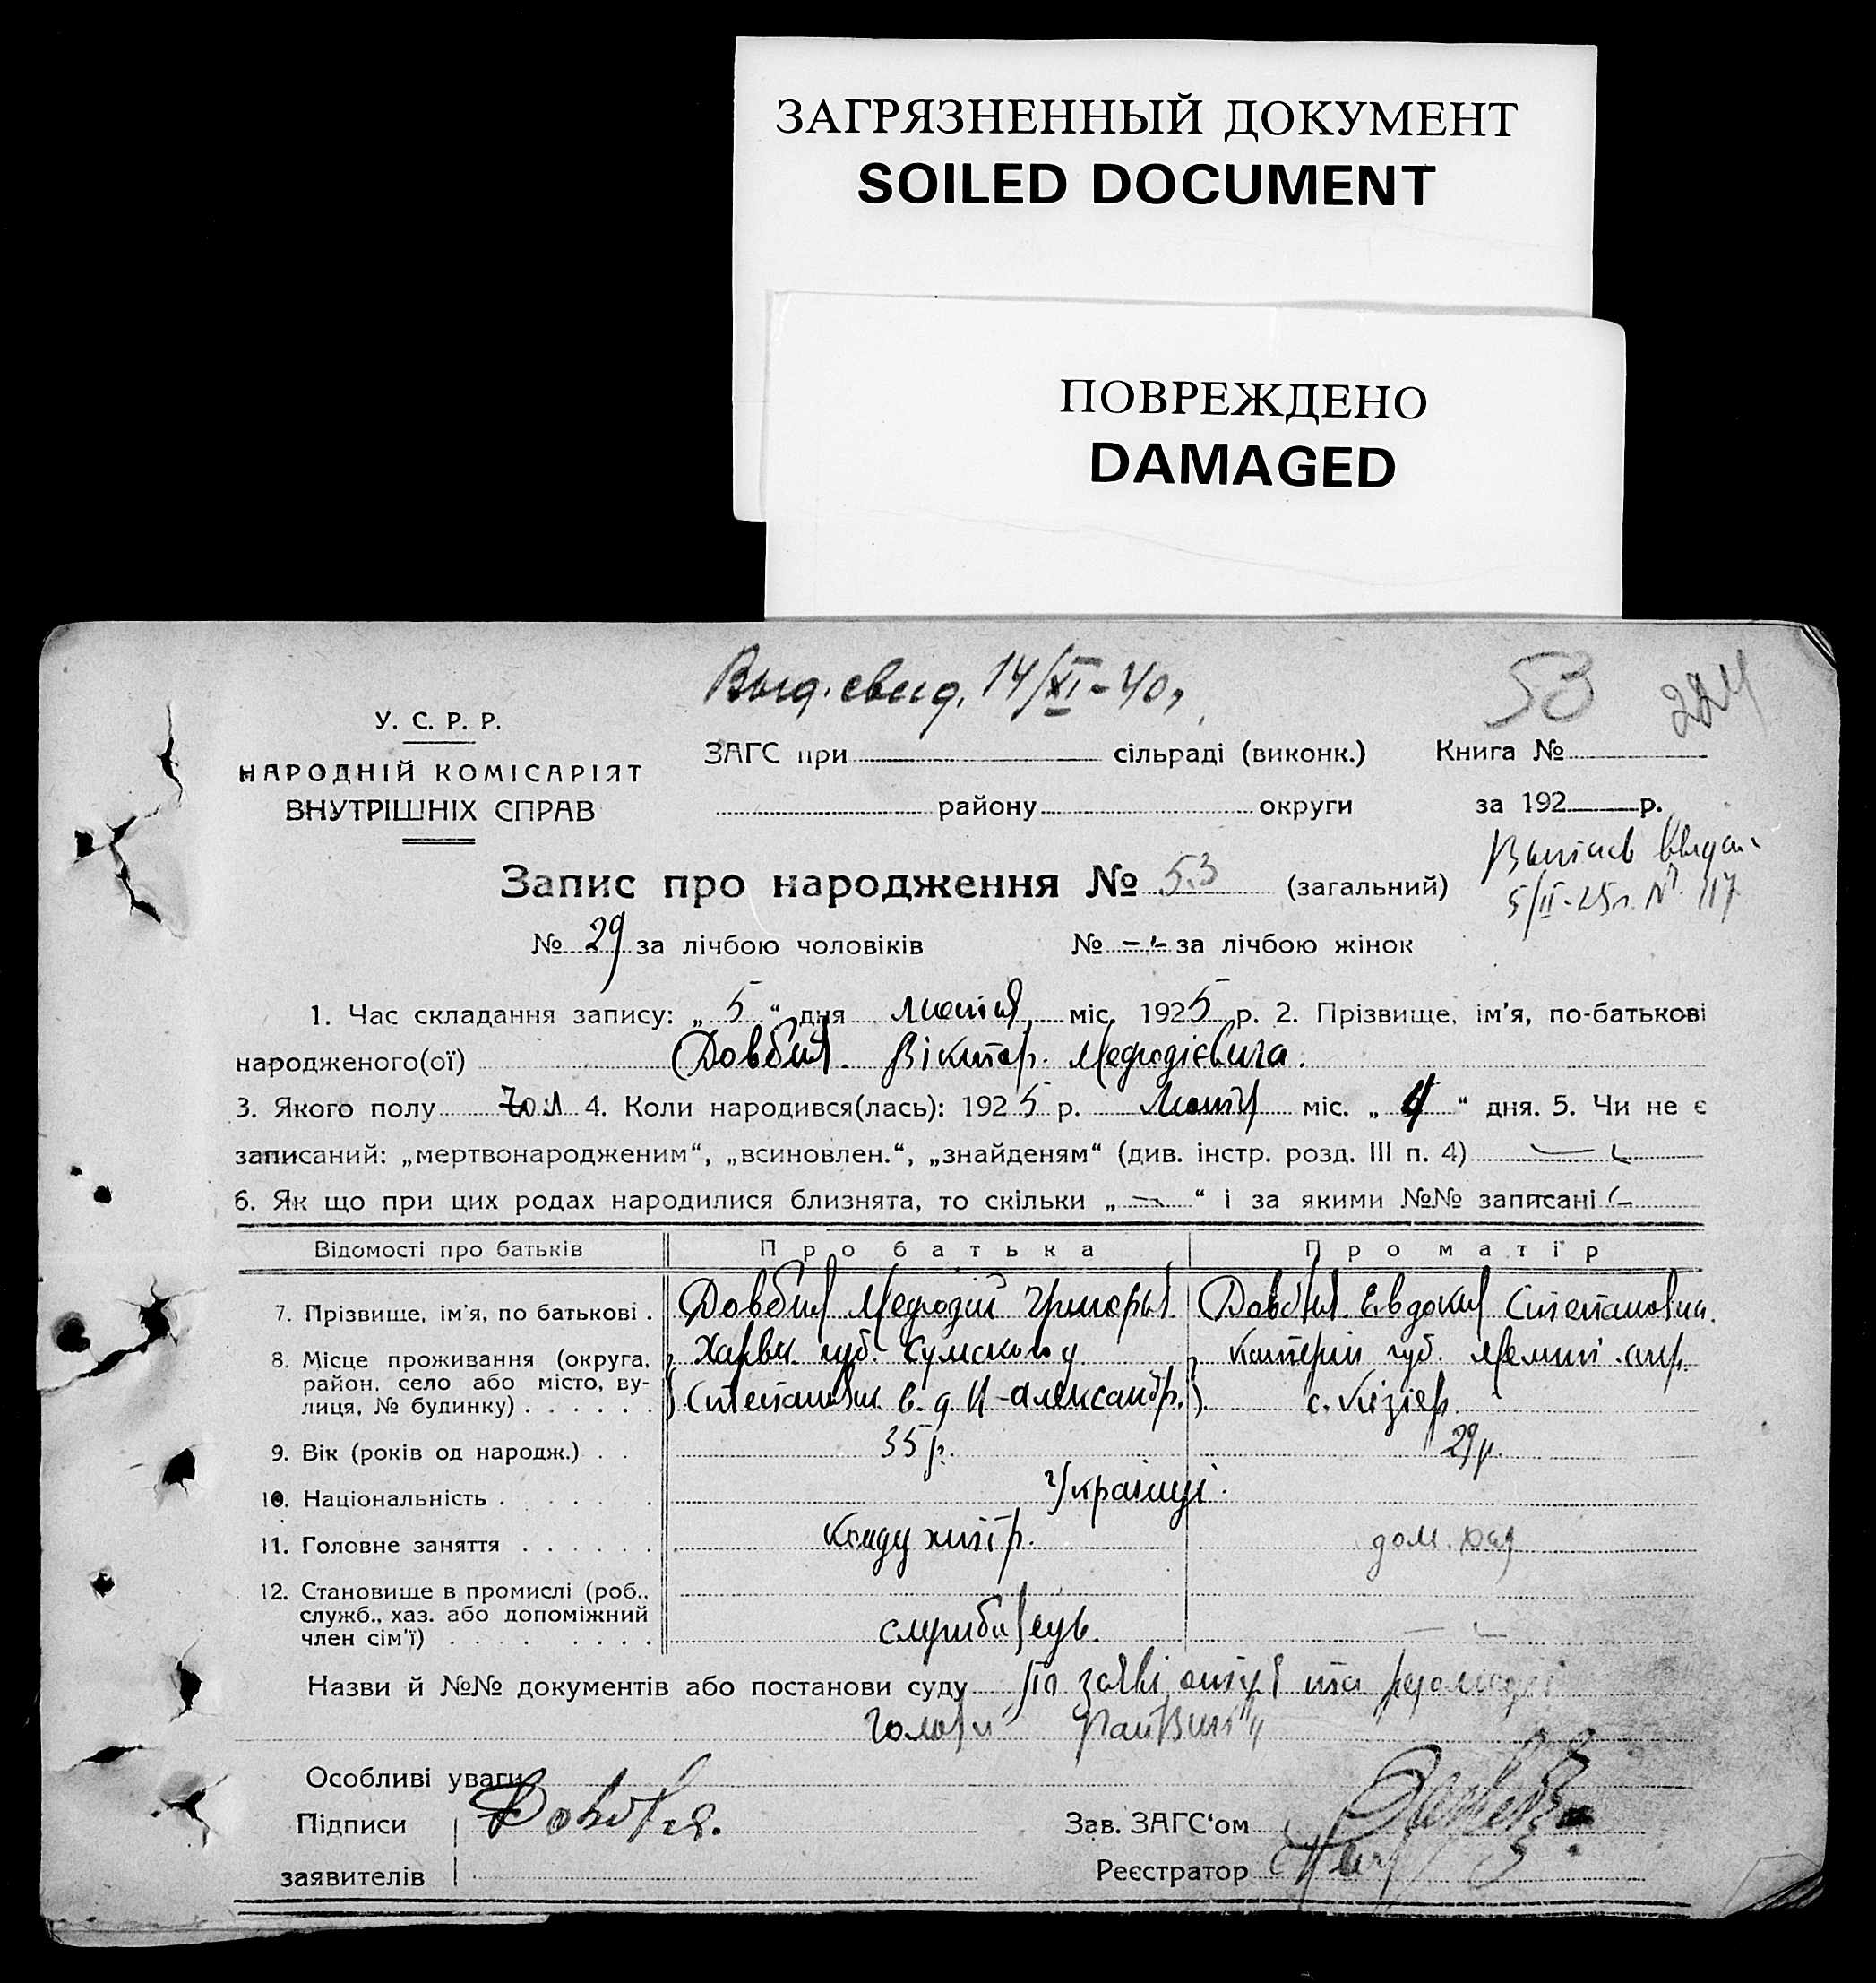 ЗАГРЯЗНЕННЫЙ ДОКУМЕНТ
SOILED DOCUMENT
ПОВРЕЖДЕНО
DAMAGED
Выд. свид. 14/XI-40г.
53 224
У. С. Р. Р.
НАРОДНІЙ КОМІСАРІЯТ
ВНУТРІШНІХ СПРАВ
ЗАГС при сільраді (виконк.) Книга №
району округи за 192 р.
Запис про народження № 53 (загальний)
5/II-25г. № 117
№ 29 за лічбою чоловіків № за лічбою жінок
1. Час складання запису: „ 5 “ дня лютня міс. 1925 р. 2. Прізвище, ім'я, по-батькові
народженого(ої) Довбня Віктор Мефодієвича.
3. Якого полу чол 4. Коли народився(лась): 1925 р. міс. „ 4 “ дня. 5. Чи не є
записаний: „мертвонародженим“, „всиновлен.“, „знайденям“ (див. інстр. розд. III п. 4)
6. Як що при цих родах народилися близнята, то скільки „ “ і за якими №№ записані
Відомості про батьків Про батька Про матір
7. Прізвище, ім'я, по батькові . Довбня Мефодій Григорьев. Довбня Евдокия Степановна.
8. Місце проживання (округа, Харьк. губ. Сумского у губ.
район, село або місто, ву- с.
лиця, № будинку) . . . . . .
9. Вік (років од народж.) . . 35 р. 29 р.
10. Національність . . . . . . Українці.
11. Головне заняття . . . . . . дом. хаз
12. Становище в промислі (роб.,
служб., хаз. або допоміжний службовець.
член сім'ї) . . . . . . . .
Назви й №№ документів або постанови суду По заяві отця та резолюції
голови
Особливі уваги
Підписи Довбня. Зав. ЗАГС'ом
заявителів Реєстратор